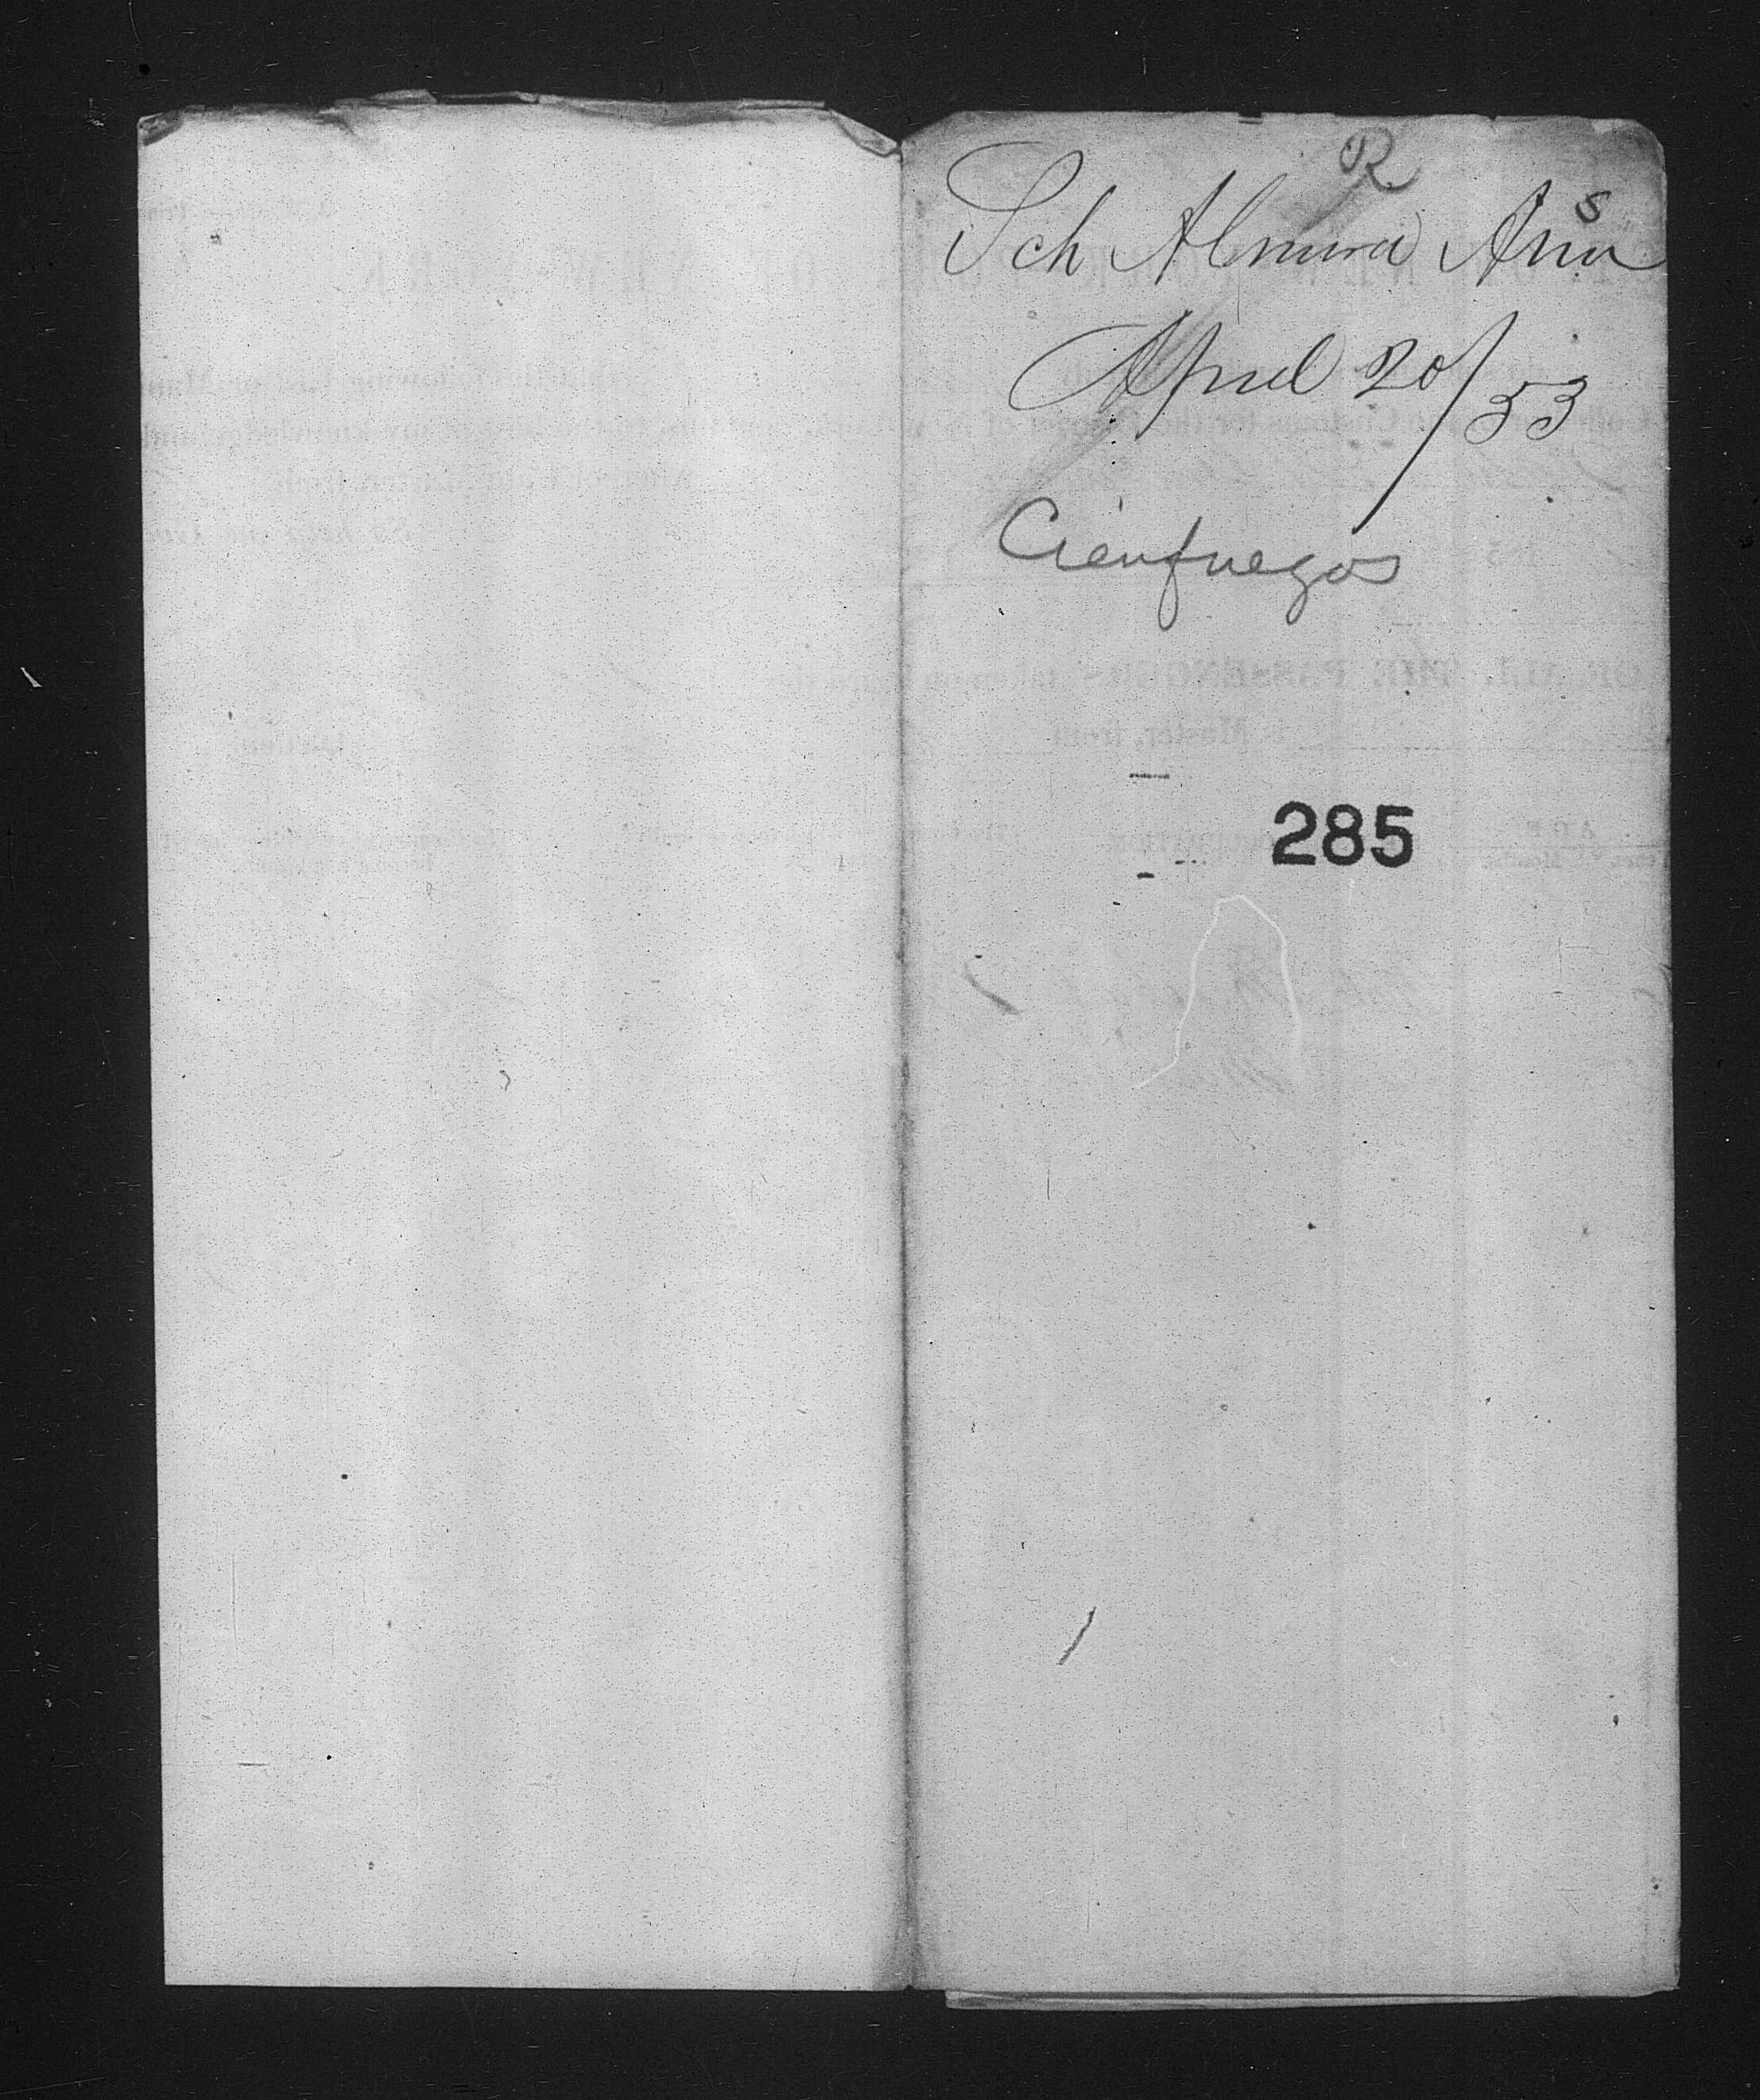 R
s
Sch Almira Ann
April 20/53
Cienfuegos
285